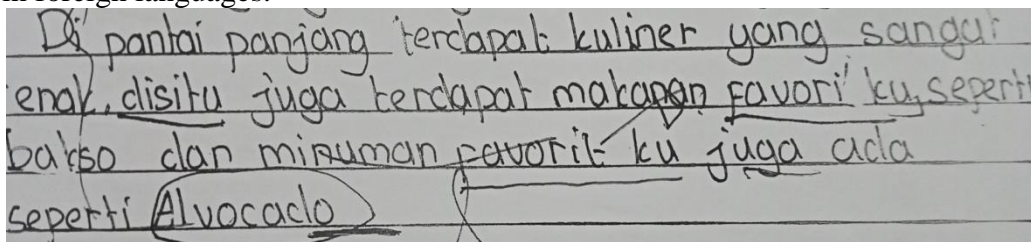 in foreign languages.
Di pantai panjang terdapat kuliner yang sangat
enak, disitu juga terdapat makanan favorit ku, seperti
bakso dan minuman favorit ku juga ada
seperti Alvocado